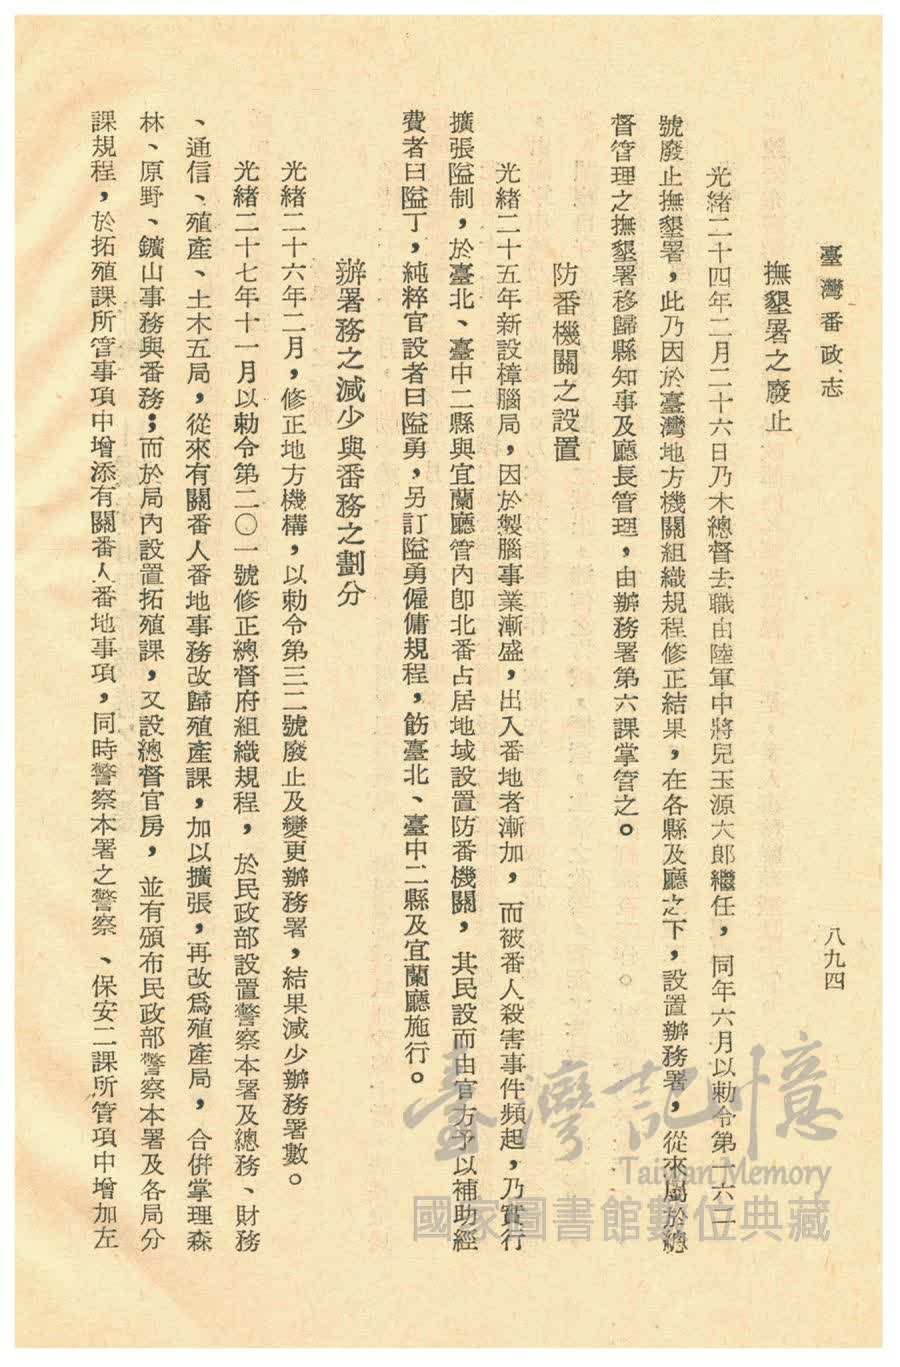 臺灣番政志
八九四
撫墾署之廢止
光緒二十四年二月二十六日乃木總督去職由陸軍中將兒玉源太郎繼任，同年六月以勅令第一六二
號廢止撫墾署，此乃因於臺灣地方機關組織規程修正結果，在各縣及廳之下，設置辦務署，從來屬於總
督管理之撫墾署移歸縣知事及廳長管理，由辦務署第六課掌管之。
防番機關之設置
光緒二十五年新設樟腦局，因於製腦事業漸盛，出入番地者漸加，而被番人殺害事件頻起，乃實行
擴張隘制，於臺北、臺中二縣與宜蘭廳管內卽北番占居地域設置防番機關，其民設而由官方予以補助經
費者曰隘丁，純粹官設者曰隘勇，另訂隘勇僱傭規程，飭臺北、臺中二縣及宜蘭廳施行。
辦署務之減少與番務之劃分
光緒二十六年二月，修正地方機構，以勅令第三二號廢止及變更辦務署，結果減少辦務署數。
光緒二十七年十一月以勅令第二〇一號修正總督府組織規程，於民政部設置警察本署及總務、財務
、通信、殖產、土木五局，從來有關番人番地事務改歸殖產課，加以擴張，再改爲殖產局，合併掌理森
林、原野、鑛山事務與番務；而於局內設置拓殖課，又設總督官房，並有頒布民政部警察本署及各局分
課規程，於拓殖課所管事項中增添有關番人番地事項，同時警察本署之警察、保安二課所管項中增加左
臺灣記憶
Taiwan Memory
國家圖書館數位典藏